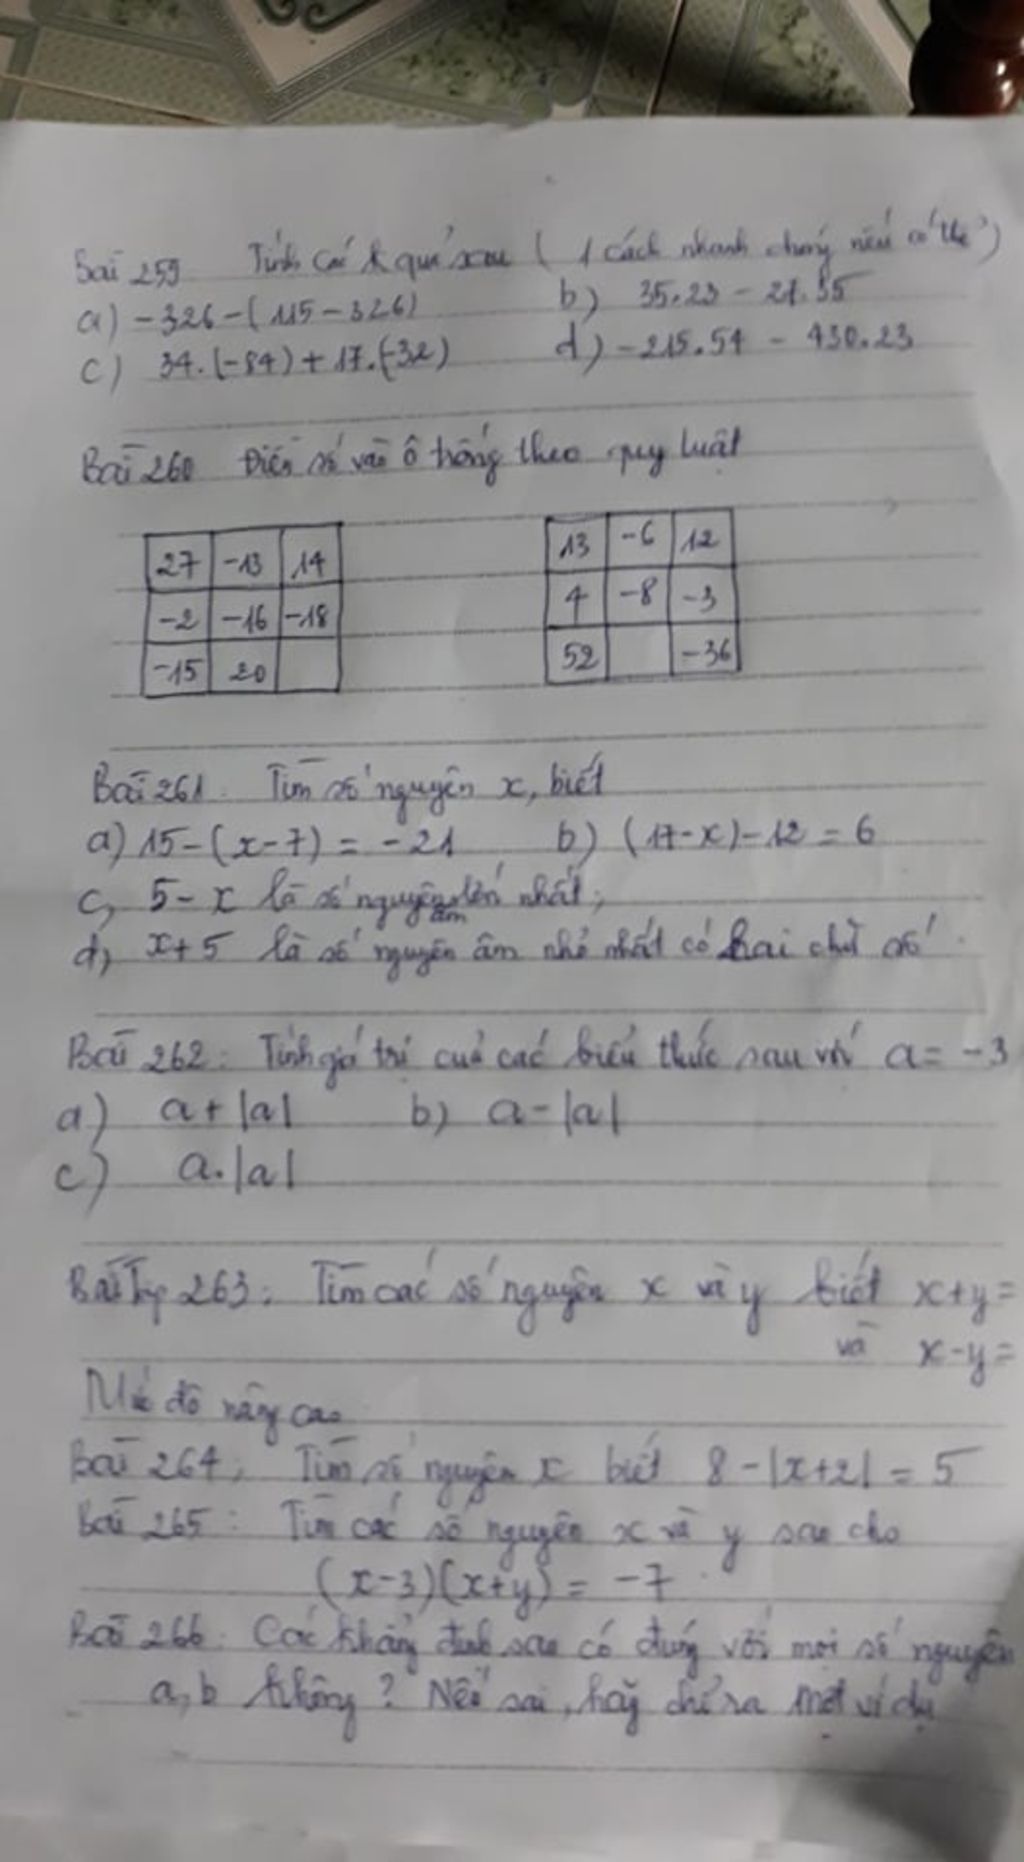 Bài 259 Tính các k quả sau ( 1 cách nhanh chóng nếu có thể )
a) -326-(115-326) b) 35.23 - 21.35
c) 34.(-84)+17.(-32) d) -215.54 - 430.23
Bài 260 Điền số vào ô trống theo quy luật
27 -13 14
-2 -16 -18
-15 20
13 -6 12
4 -8 -3
52 -36
Bài 261. Tìm số nguyên x, biết
a) 15-(x-7) = -21 b) (17-x)-12 = 6
c, 5-x là số nguyên âm lớn nhất;
d, x+5 là số nguyên âm nhỏ nhất có hai chữ số.
Bài 262: Tính giá trị của các biểu thức sau với a= -3
a) a+|a| b) a-|a|
c) a.|a|
Bài Tập 263: Tìm các số nguyên x và y biết x+y=
và x-y=
Mức độ nâng cao
Bài 264: Tìm số nguyên x biết 8-|x+2| = 5
Bài 265: Tìm các số nguyên x và y sao cho
(x-3)(x+y) = -7.
Bài 266: Các khẳng định sau có đúng với mọi số nguyên
a,b không? Nếu sai, hãy chỉ ra một ví dụ